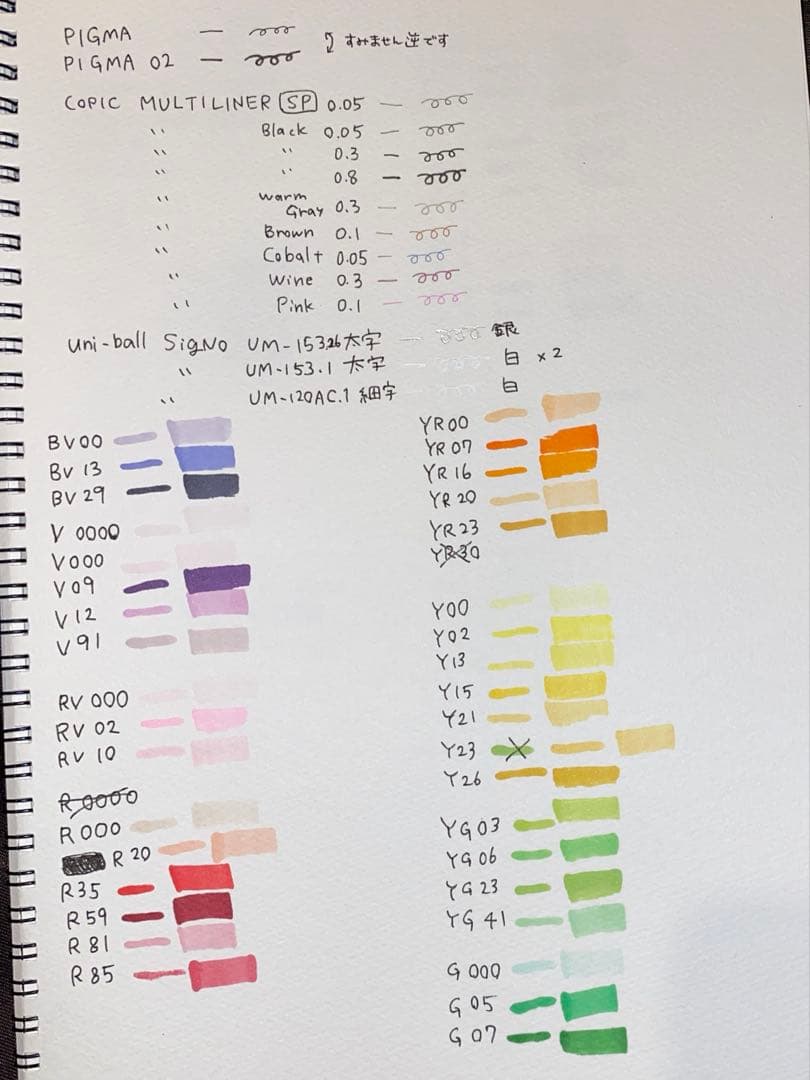 PIGMA
すみません逆です
PIGMA 02
COPIC MULTILINER SP 0.05
〃 Black 0.05
〃 〃 0.3
〃 〃 0.8
〃 Warm Gray 0.3
〃 Brown 0.1
〃 Cobalt 0.05
〃 Wine 0.3
〃 Pink 0.1
uni-ball SigNo UM-153.26 太字 銀
〃 UM-153.1 太字 白 x2
〃 UM-120AC.1 細字 白
BV00
BV 13
BV 29
V 0000
V000
V09
V12
V91
RV 000
RV 02
RV 10
R 0000
R000
R 20
R35
R59
R 81
R 85
YR00
YR 07
YR 16
YR 20
YR23
YR30
Y00
Y02
Y13
Y15
Y21
Y23
Y26
YG 03
YG 06
YG 23
YG 41
G 000
G 05
G 07